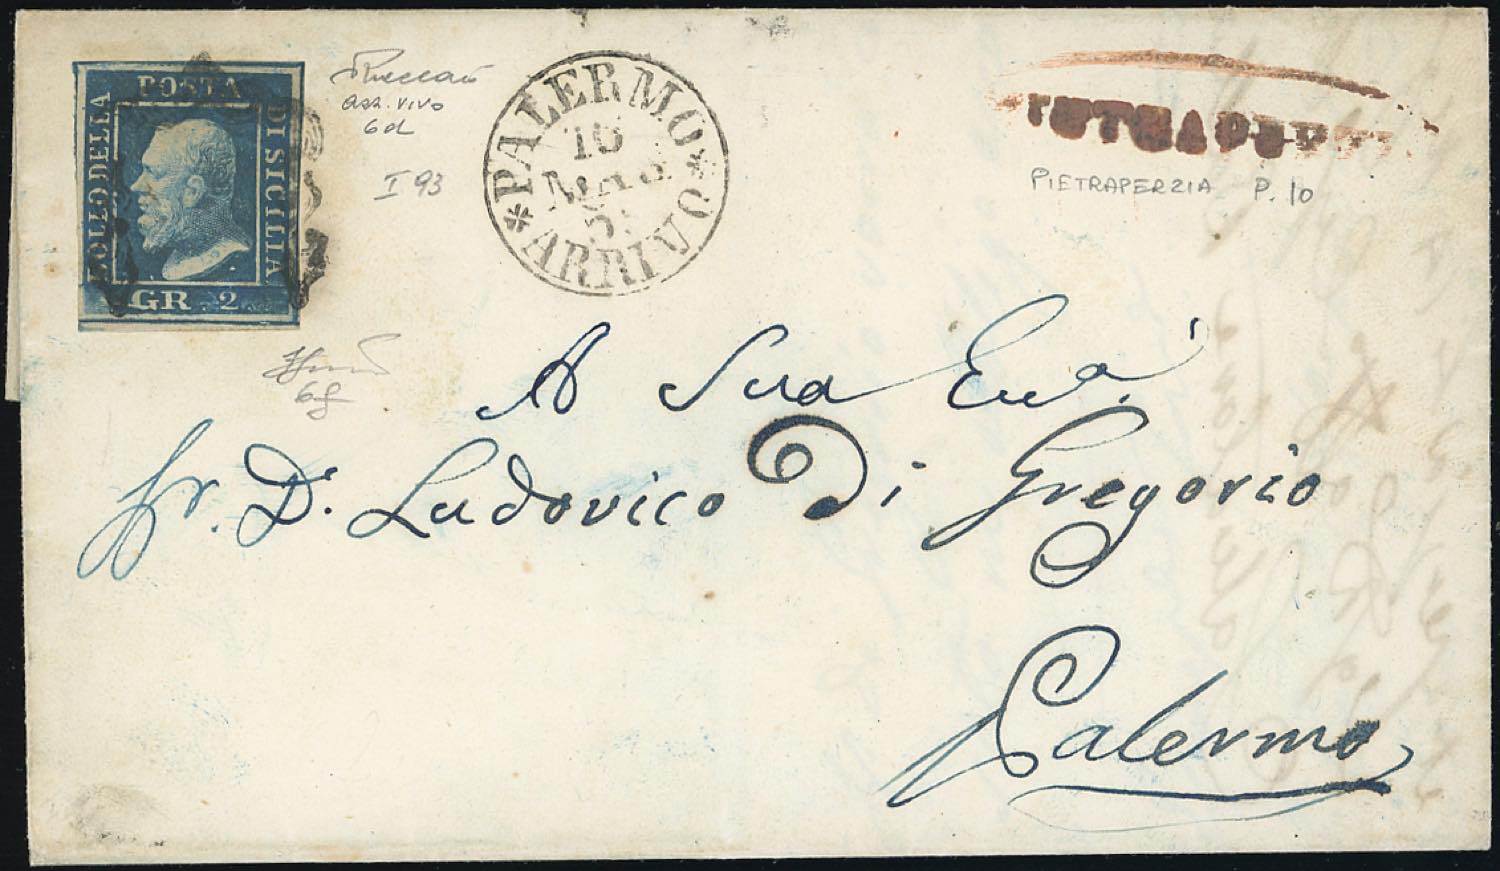 BOLLO DELLA
POSTA
DI SICILIA
GR. 2.
azz. vivo
6d
I 93
PALERMO
ARRIVO
PIETRAPERZIA P. 10
A Sua Ecc.a
Sr. D. Ludovico Di Gregorio
Palermo